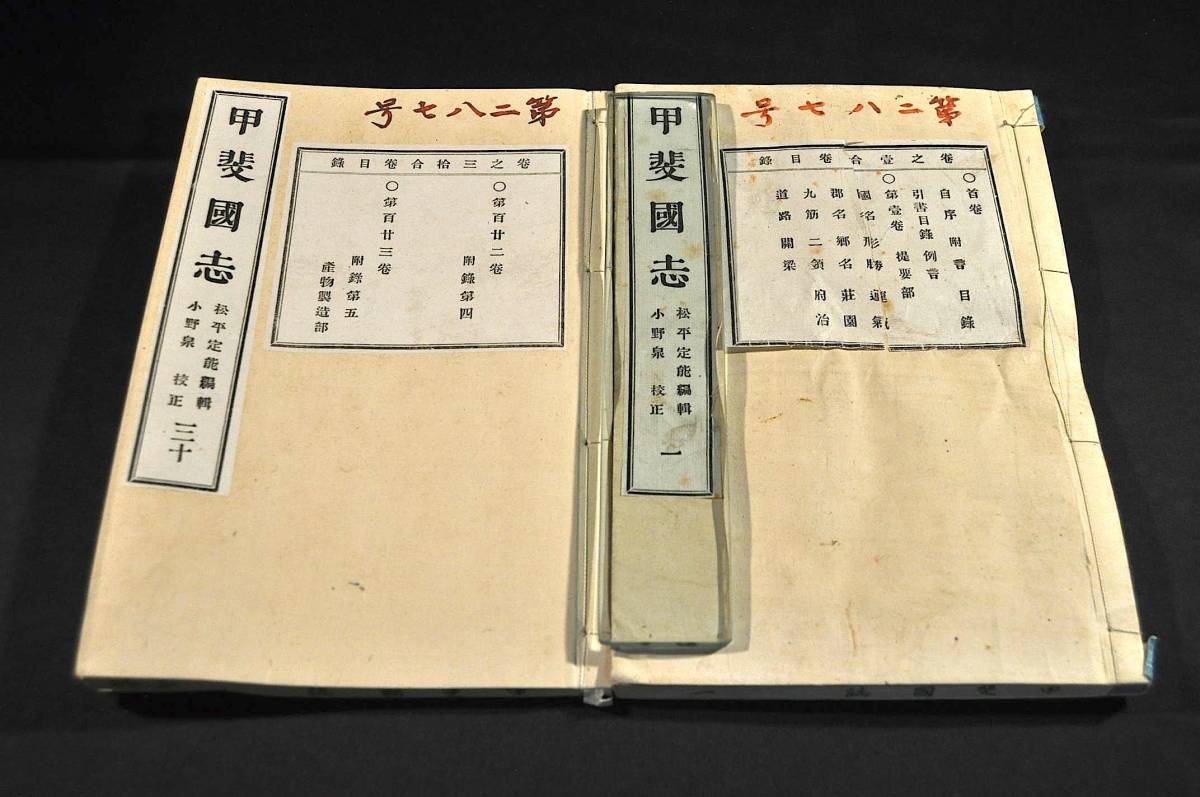 第二八七号
甲斐國志
松平定能編輯
小野泉 校正
一
卷之壹合卷目錄
○首卷
自序 附言 目錄
引書目錄 例言
○第壹卷 提要部
國名 形勝 運氣
郡名 郷名 莊園
九筋二領 府治
道路 關梁
第二八七号
甲斐國志
松平定能編輯
小野泉 校正
三十
卷之三拾合卷目錄
○第百廿二卷
附錄第四
○第百廿三卷
附錄第五
產物製造部
甲斐國志 一